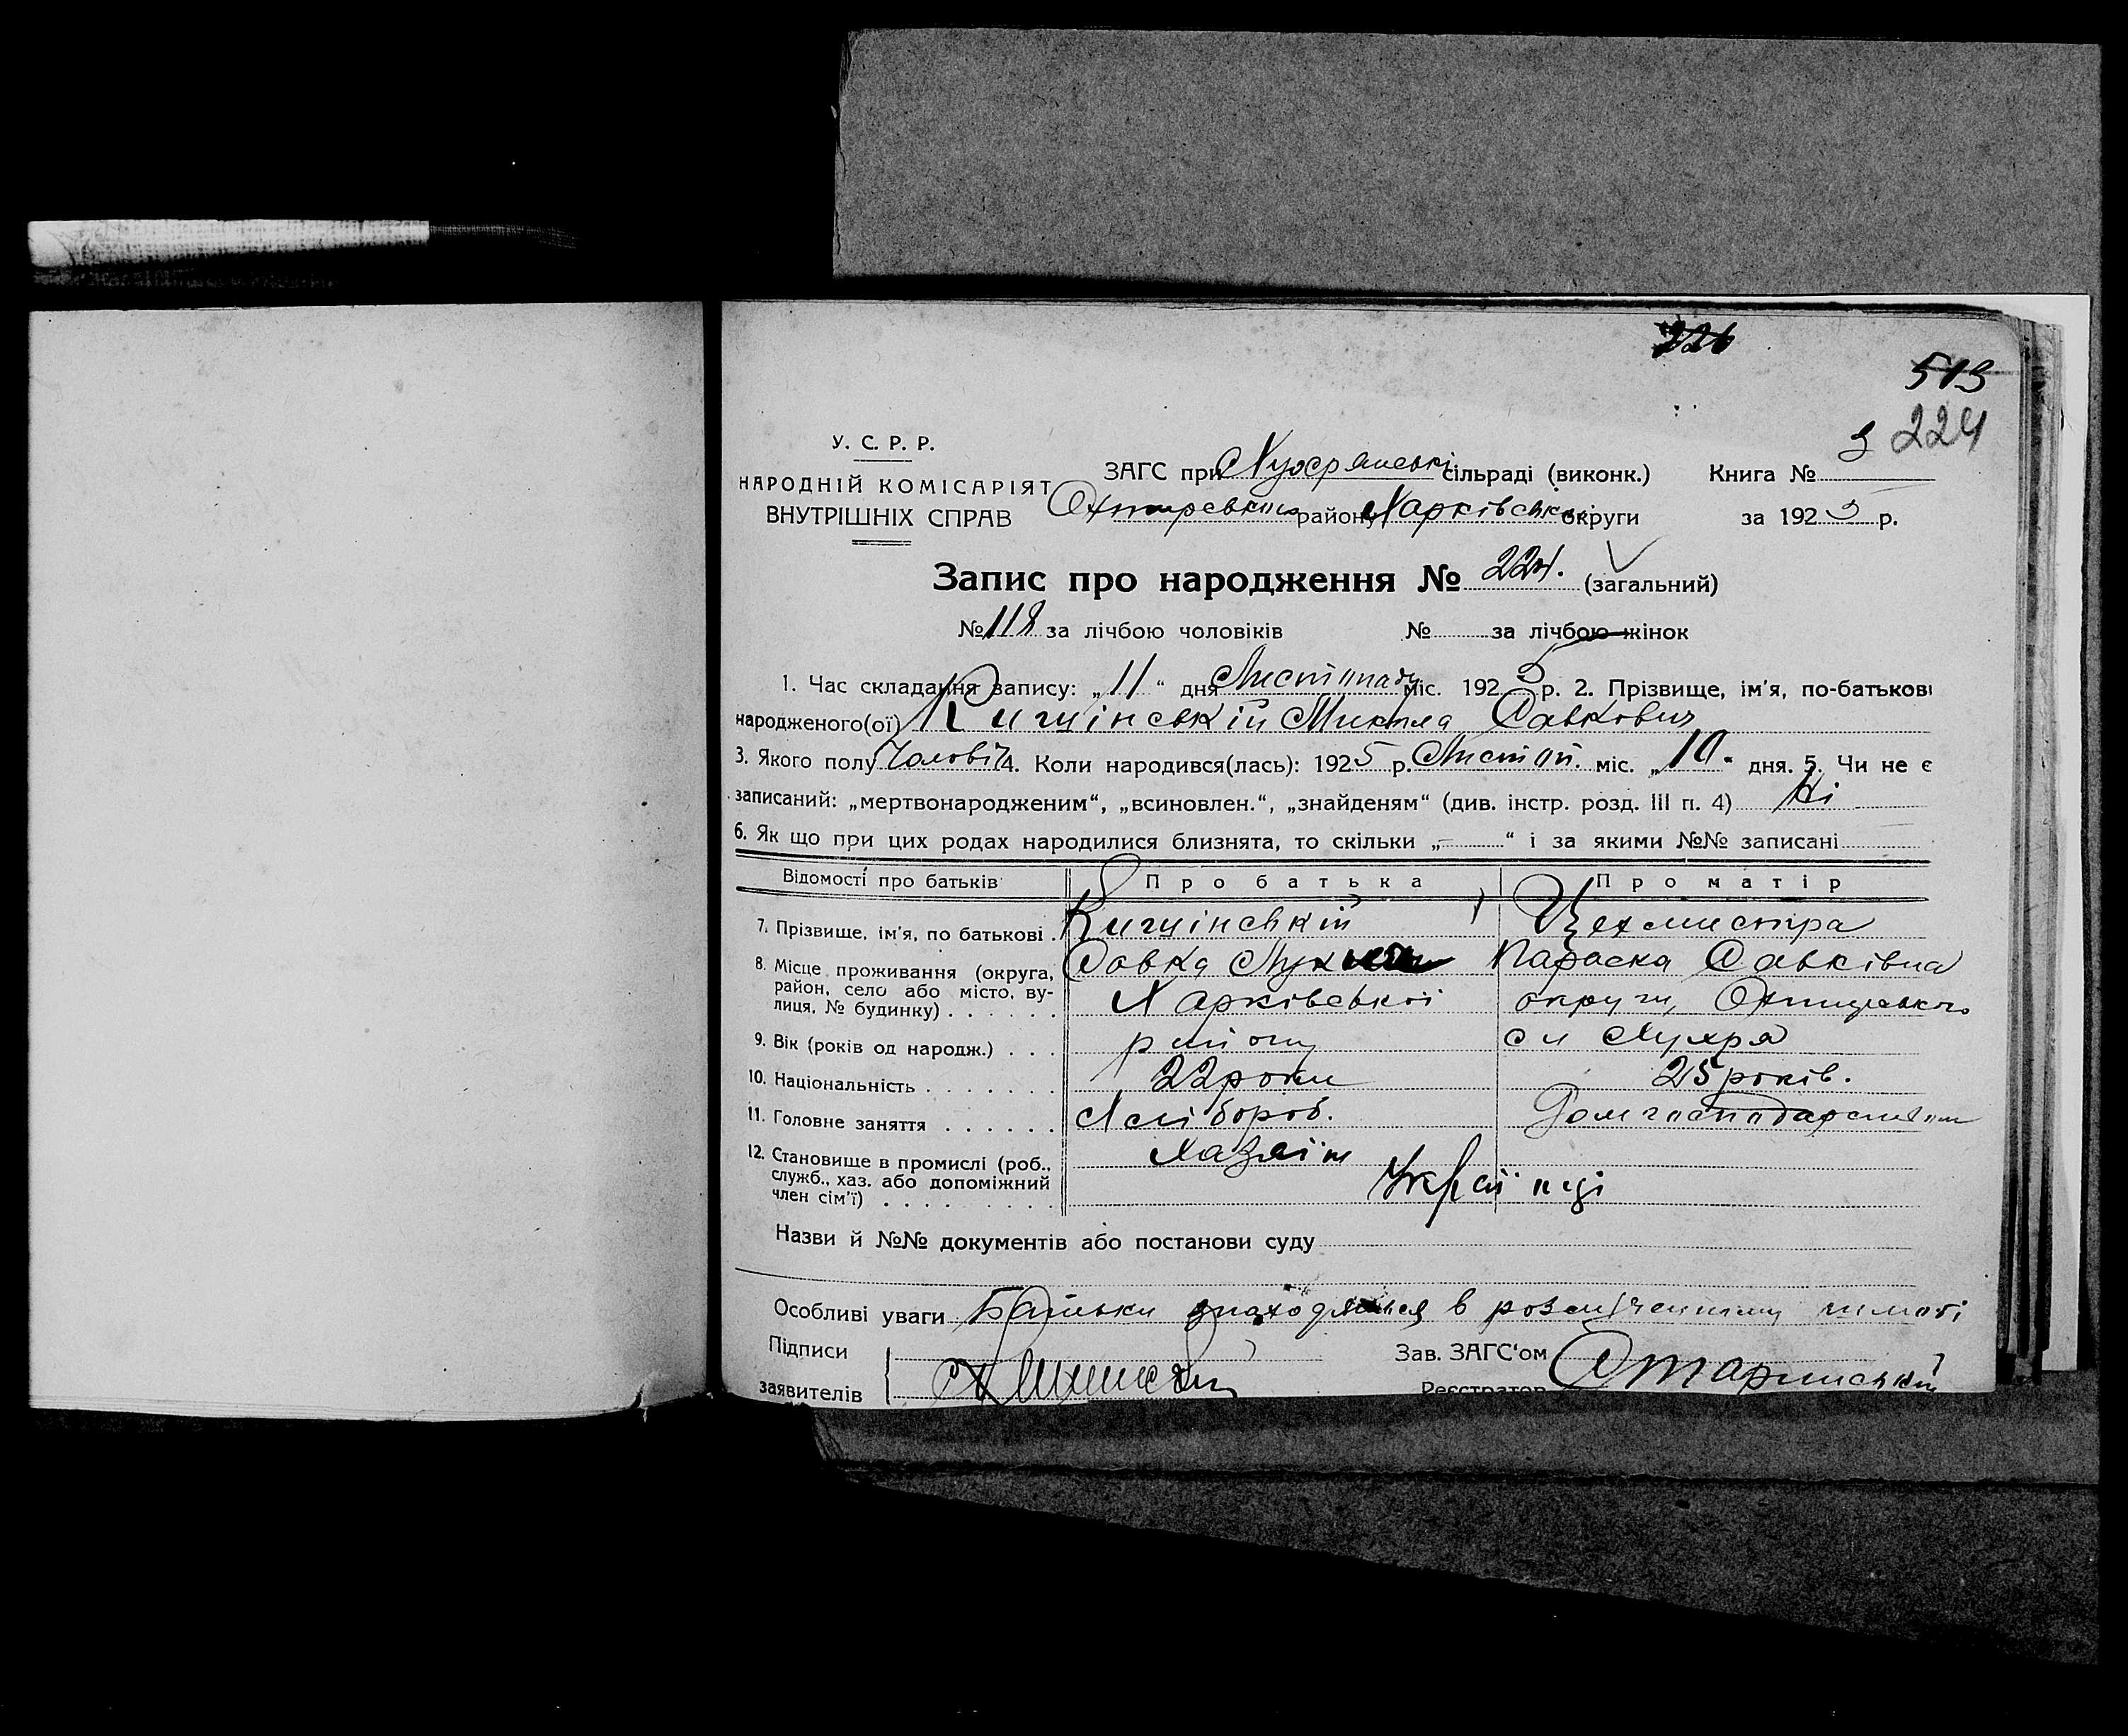 226
513
224
У. С. Р. Р.
НАРОДНІЙ КОМІСАРІЯТ
ВНУТРІШНІХ СПРАВ
ЗАГС при сільраді (виконк.) Книга № 3
району Харківської округи за 1925 р.
Запис про народження № 224. (загальний)
№ 118 за лічбою чоловіків № за лічбою жінок
1. Час складання запису: „11“ дня Листопаду міс. 1925 р. 2. Прізвище, ім'я, по-батькові
народженого(ої) Микола Савкович
3. Якого полу Чоловіч 4. Коли народився(лась): 1925 р. Листоп. міс. „10“ дня. 5. Чи не є
записаний: „мертвонародженим“, „всиновлен.“, „знайденям“ (див. інстр. розд. III п. 4) Ні
6. Як що при цих родах народилися близнята, то скільки „—“ і за якими №№ записані
Відомості про батьків Про батька Про матір
7. Прізвище, ім'я, по батькові Цехмистра
Савка Параска Савківна
8. Місце проживання (округа, район, село або місто, вулиця, № будинку) Харківської округи,
9. Вік (років од народж.) району
10. Національність 22 роки 25 років.
11. Головне заняття Хлібороб.
12. Становище в промислі (роб., служб., хаз. або допоміжний член сім'ї) Хазяїн
Українці
Назви й №№ документів або постанови суду
Особливі уваги Батьки знаходяться в
Підписи
заявителів
Зав. ЗАГС'ом
Реєстратор